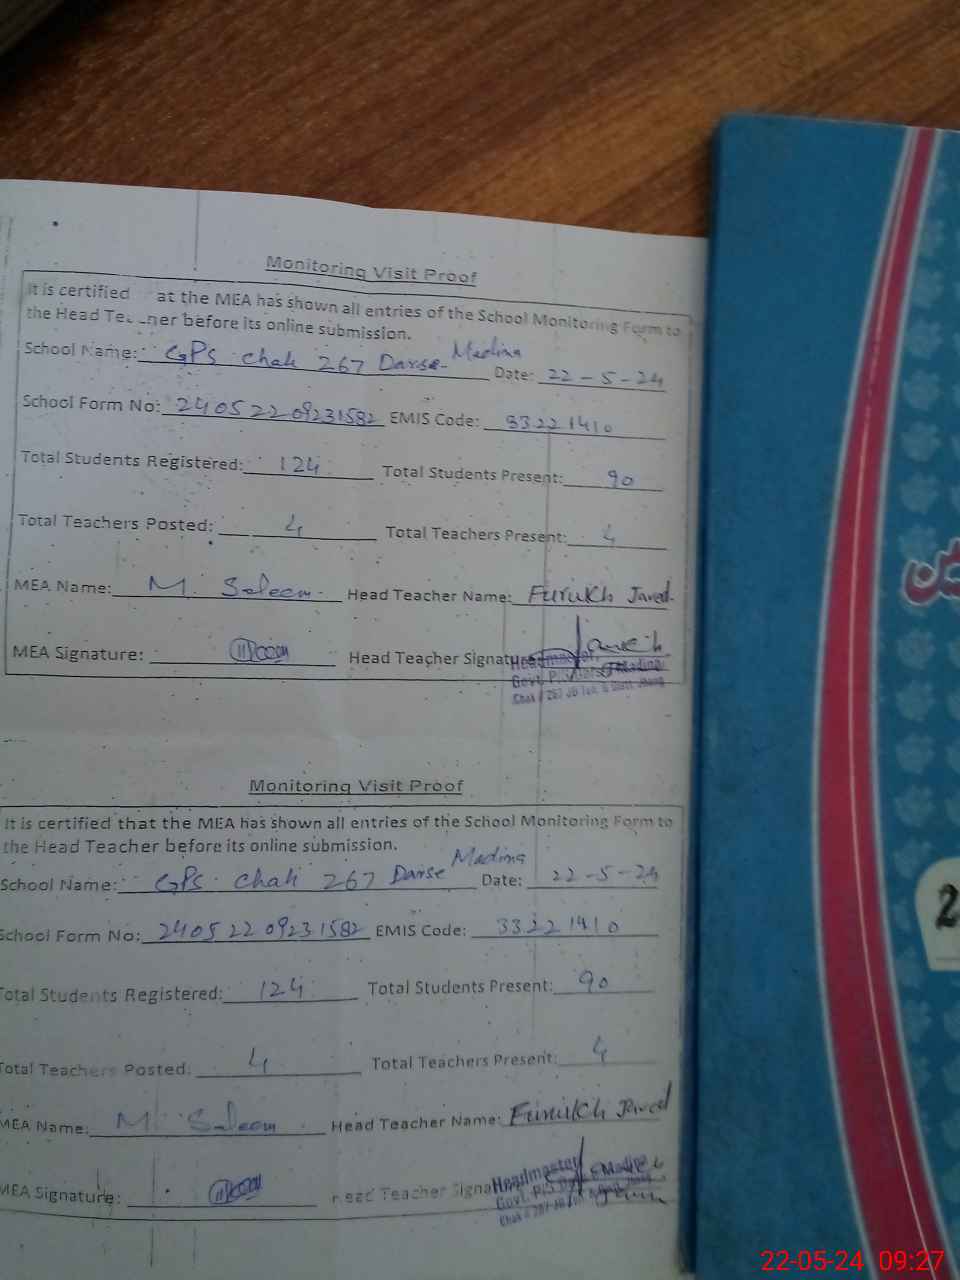 Monitoring Visit Proof
It is certified at the MEA has shown all entries of the School Monitoring Form to
the Head Te ner before its online submission.
School Name: GPS Chak 267 Darse Madina Date: 22-5-24
School Form No: 24052209231582 EMIS Code: 33221410
Total Students Registered: 124 Total Students Present: 90
Total Teachers Posted: 4 Total Teachers Present: 4
MEA Name: M. Saleem Head Teacher Name: Furukh Javed
MEA Signature: Head Teacher Signature
Headmaster
Monitoring Visit Proof
It is certified that the MEA has shown all entries of the School Monitoring Form to
the Head Teacher before its online submission.
School Name: GPS Chak 267 Darse Madina Date: 22-5-24
School Form No: 24052209231582 EMIS Code: 33221410
Total Students Registered: 124 Total Students Present: 90
Total Teachers Posted: 4 Total Teachers Present: 4
MEA Name: M. Saleem Head Teacher Name: Furukh Javed
MEA Signature: ead Teacher Signa
Headmaster
2
22-05-24 09:27